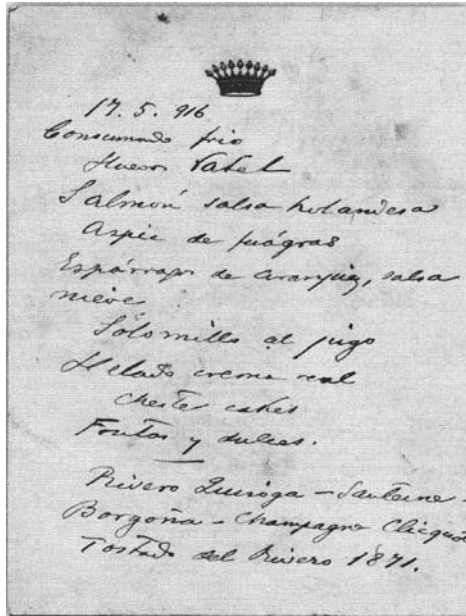 17. 5. 916
Consumado frio
Huevos Vatel
Salmón salsa holandesa
Aspic de fuágras
Espárragos de Aranjuez, salsa
nieve
Solomillo al jugo
Helado crema real
Chester cakes
Frutas y dulces.
Rivero Quiroga - Sauterne -
Borgoña - Champagne Clicquot
Tostado del Rivero 1871.